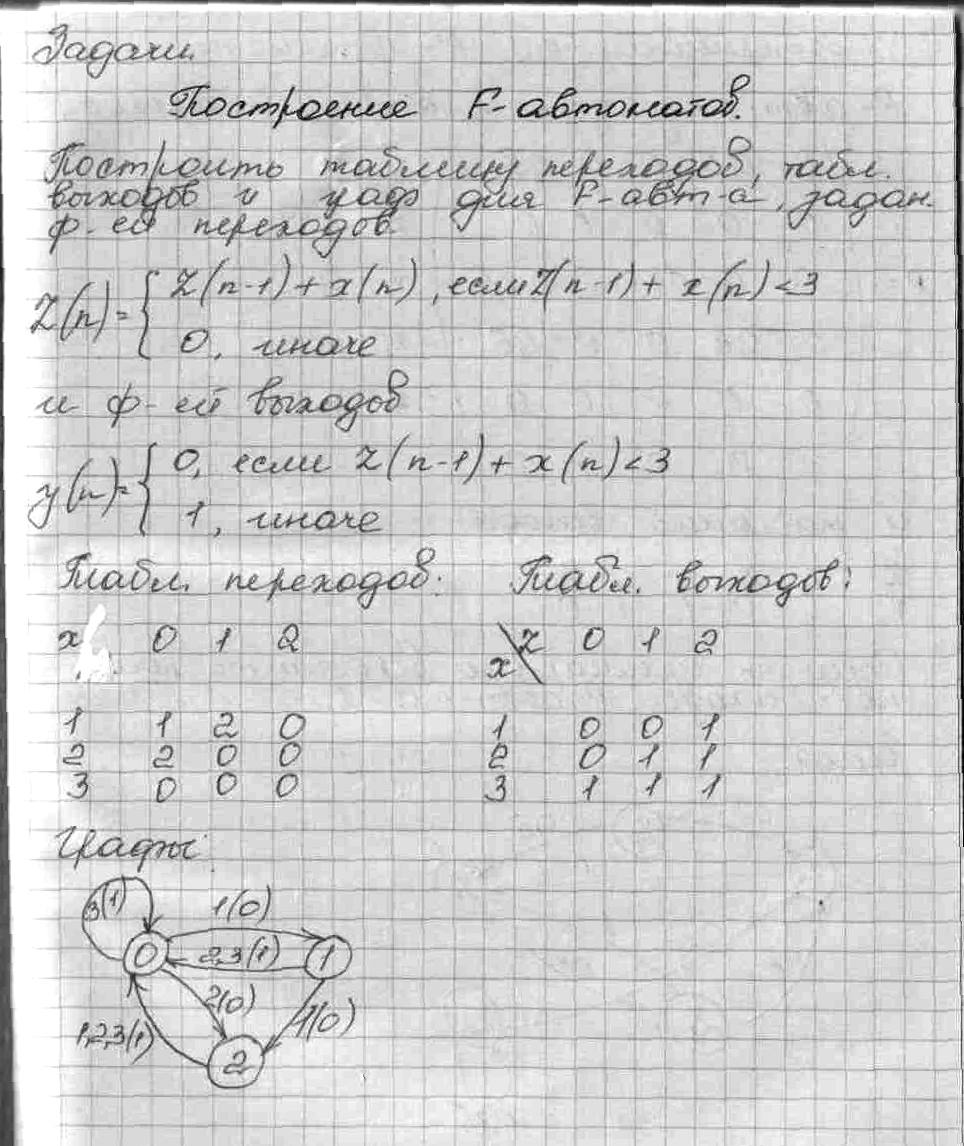 Задачи.
Построение F-автоматов.
Построить таблицу переходов, табл.
выходов и граф для F-авт-а, задан.
ф-ей переходов
Z(n)= { Z(n-1)+x(n), если Z(n-1)+ x(n)<3
0, иначе
и ф-ей выходов
y(n)= { 0, если Z(n-1)+x(n)<3
1, иначе
Табл. переходов: Табл. выходов:
x 0 1 2 x\z 0 1 2
1 1 2 0 1 0 0 1
2 2 0 0 2 0 1 1
3 0 0 0 3 1 1 1
Графы:
3(1) 1(0)
0 2,3(1) 1
2(0) 1(0)
1,2,3(1) 2